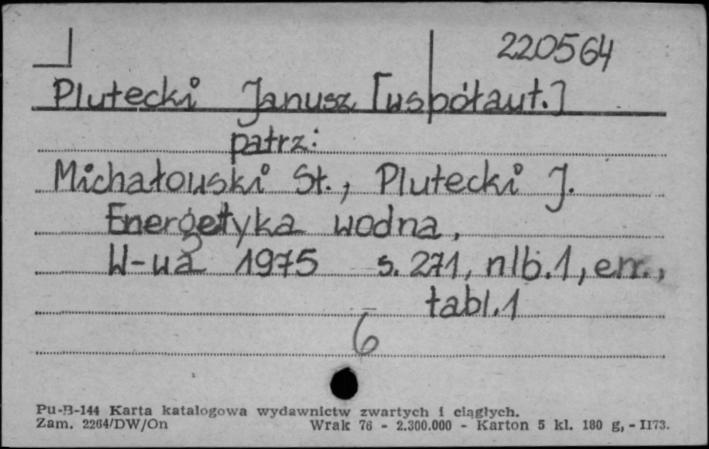 220564
Plutecki Janusz [współaut.]
patrz:
Michałowski St., Plutecki J.
Energetyka wodna,
W-wa 1975 s. 271, nlb. 1, err.,
tabl. 1
6
Pu-B-144 Karta katalogowa wydawnictw zwartych i ciągłych.
Zam. 2264/DW/On Wrak 76 - 2.300.000 - Karton 5 kl. 180 g, - II73.